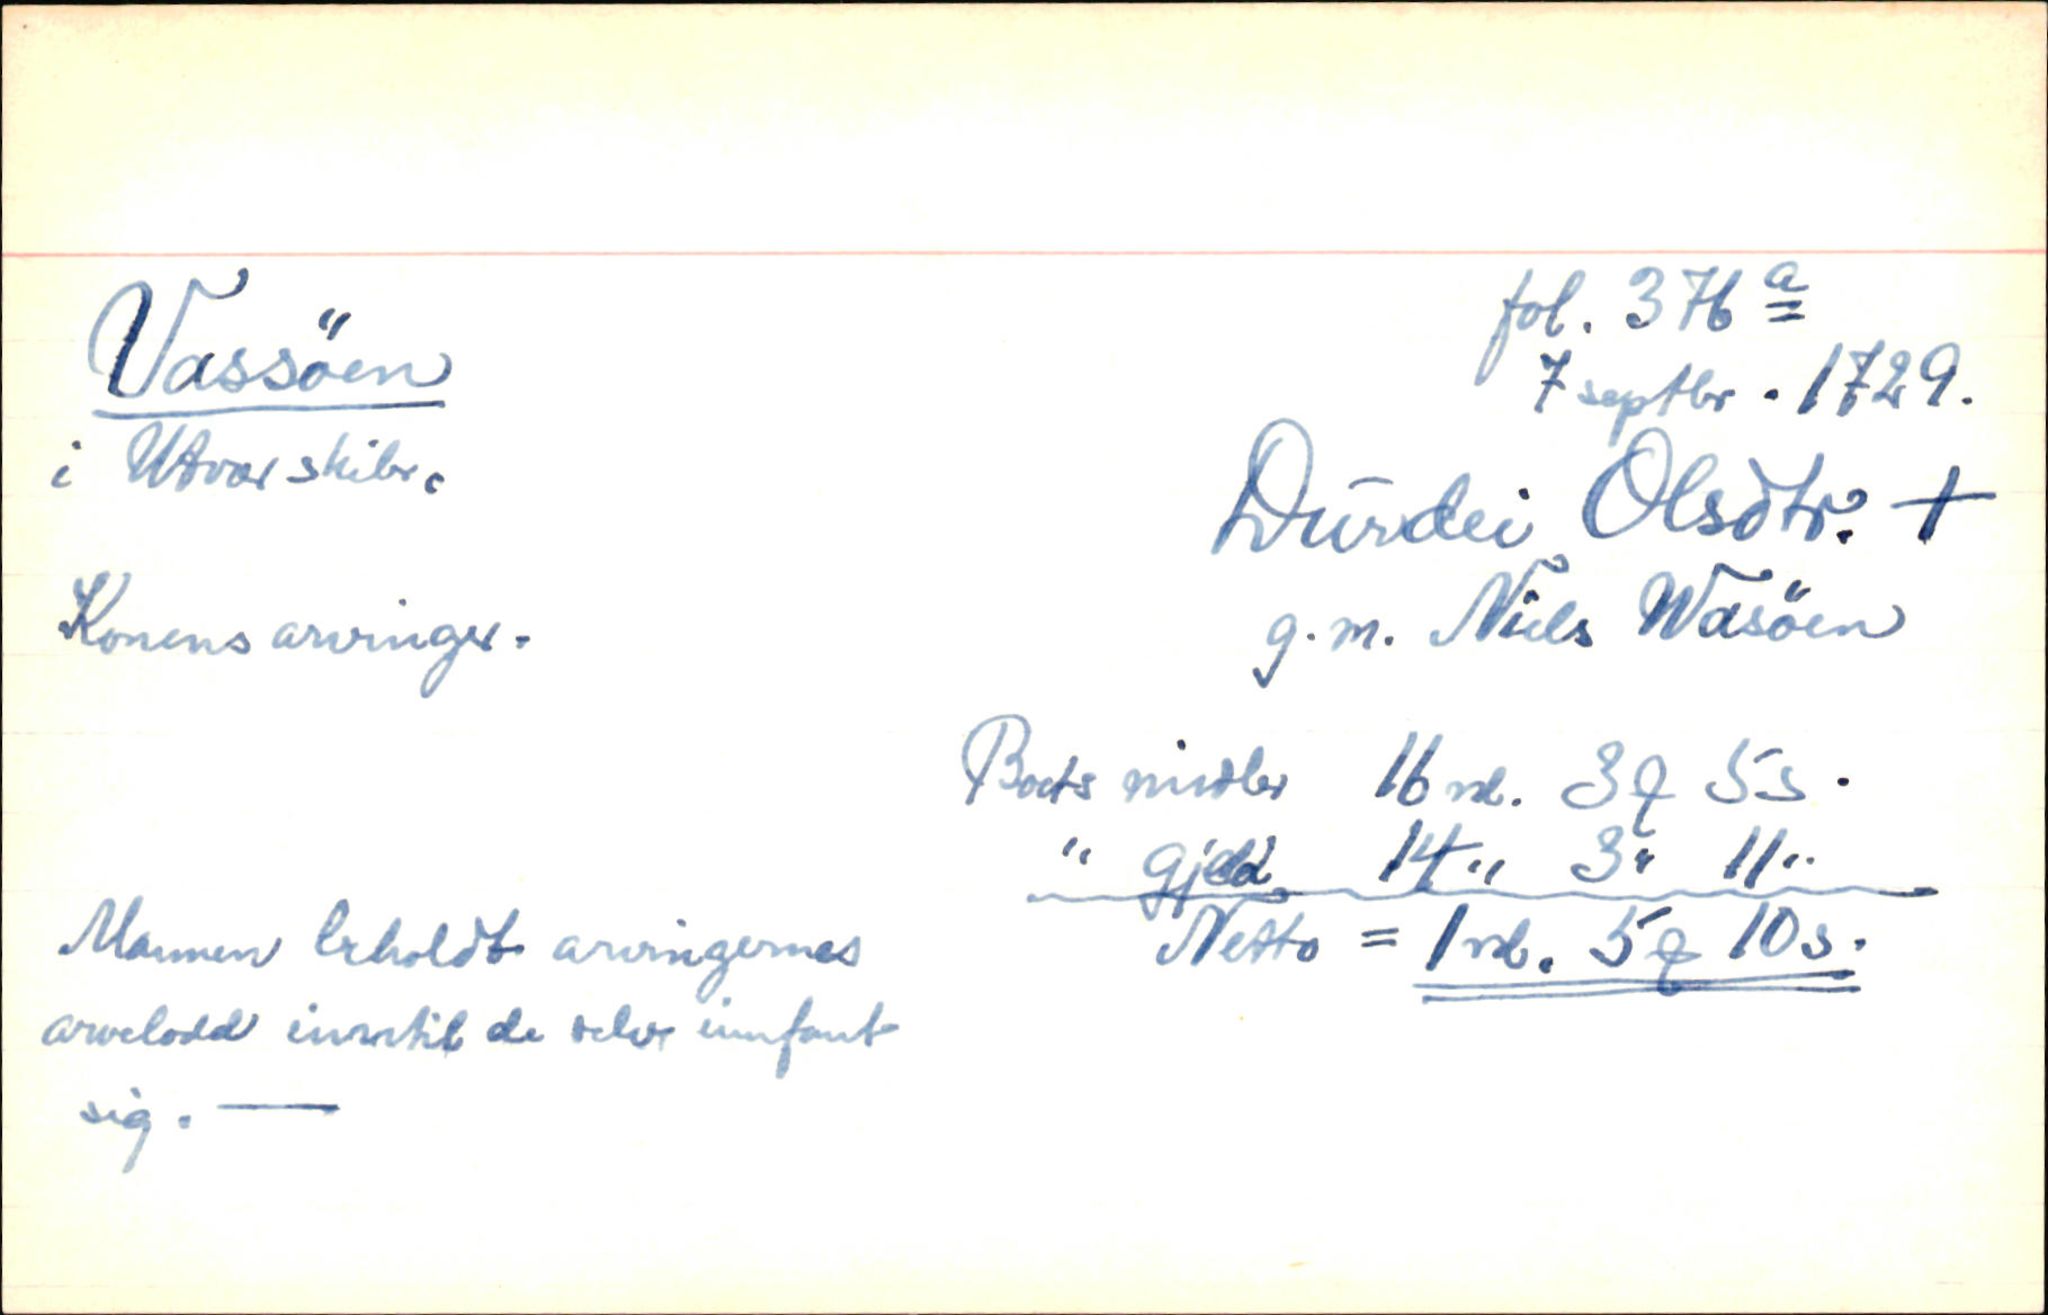 fol. 376 a
Vassöen
7 septbr. 1729.
i Utvær skibr.
Durdei Olsdtr. +
Konens arvinger.
g. m. Niels Wasöen
Boets midler 16 rd. 3 q 5 s.
" Gjeld 14 " 3 " 11 "
Netto = 1 rd. 5 q 10 s.
Mannen beholdt arvingernes
arvelodd inntil de selv innfant
sig. —